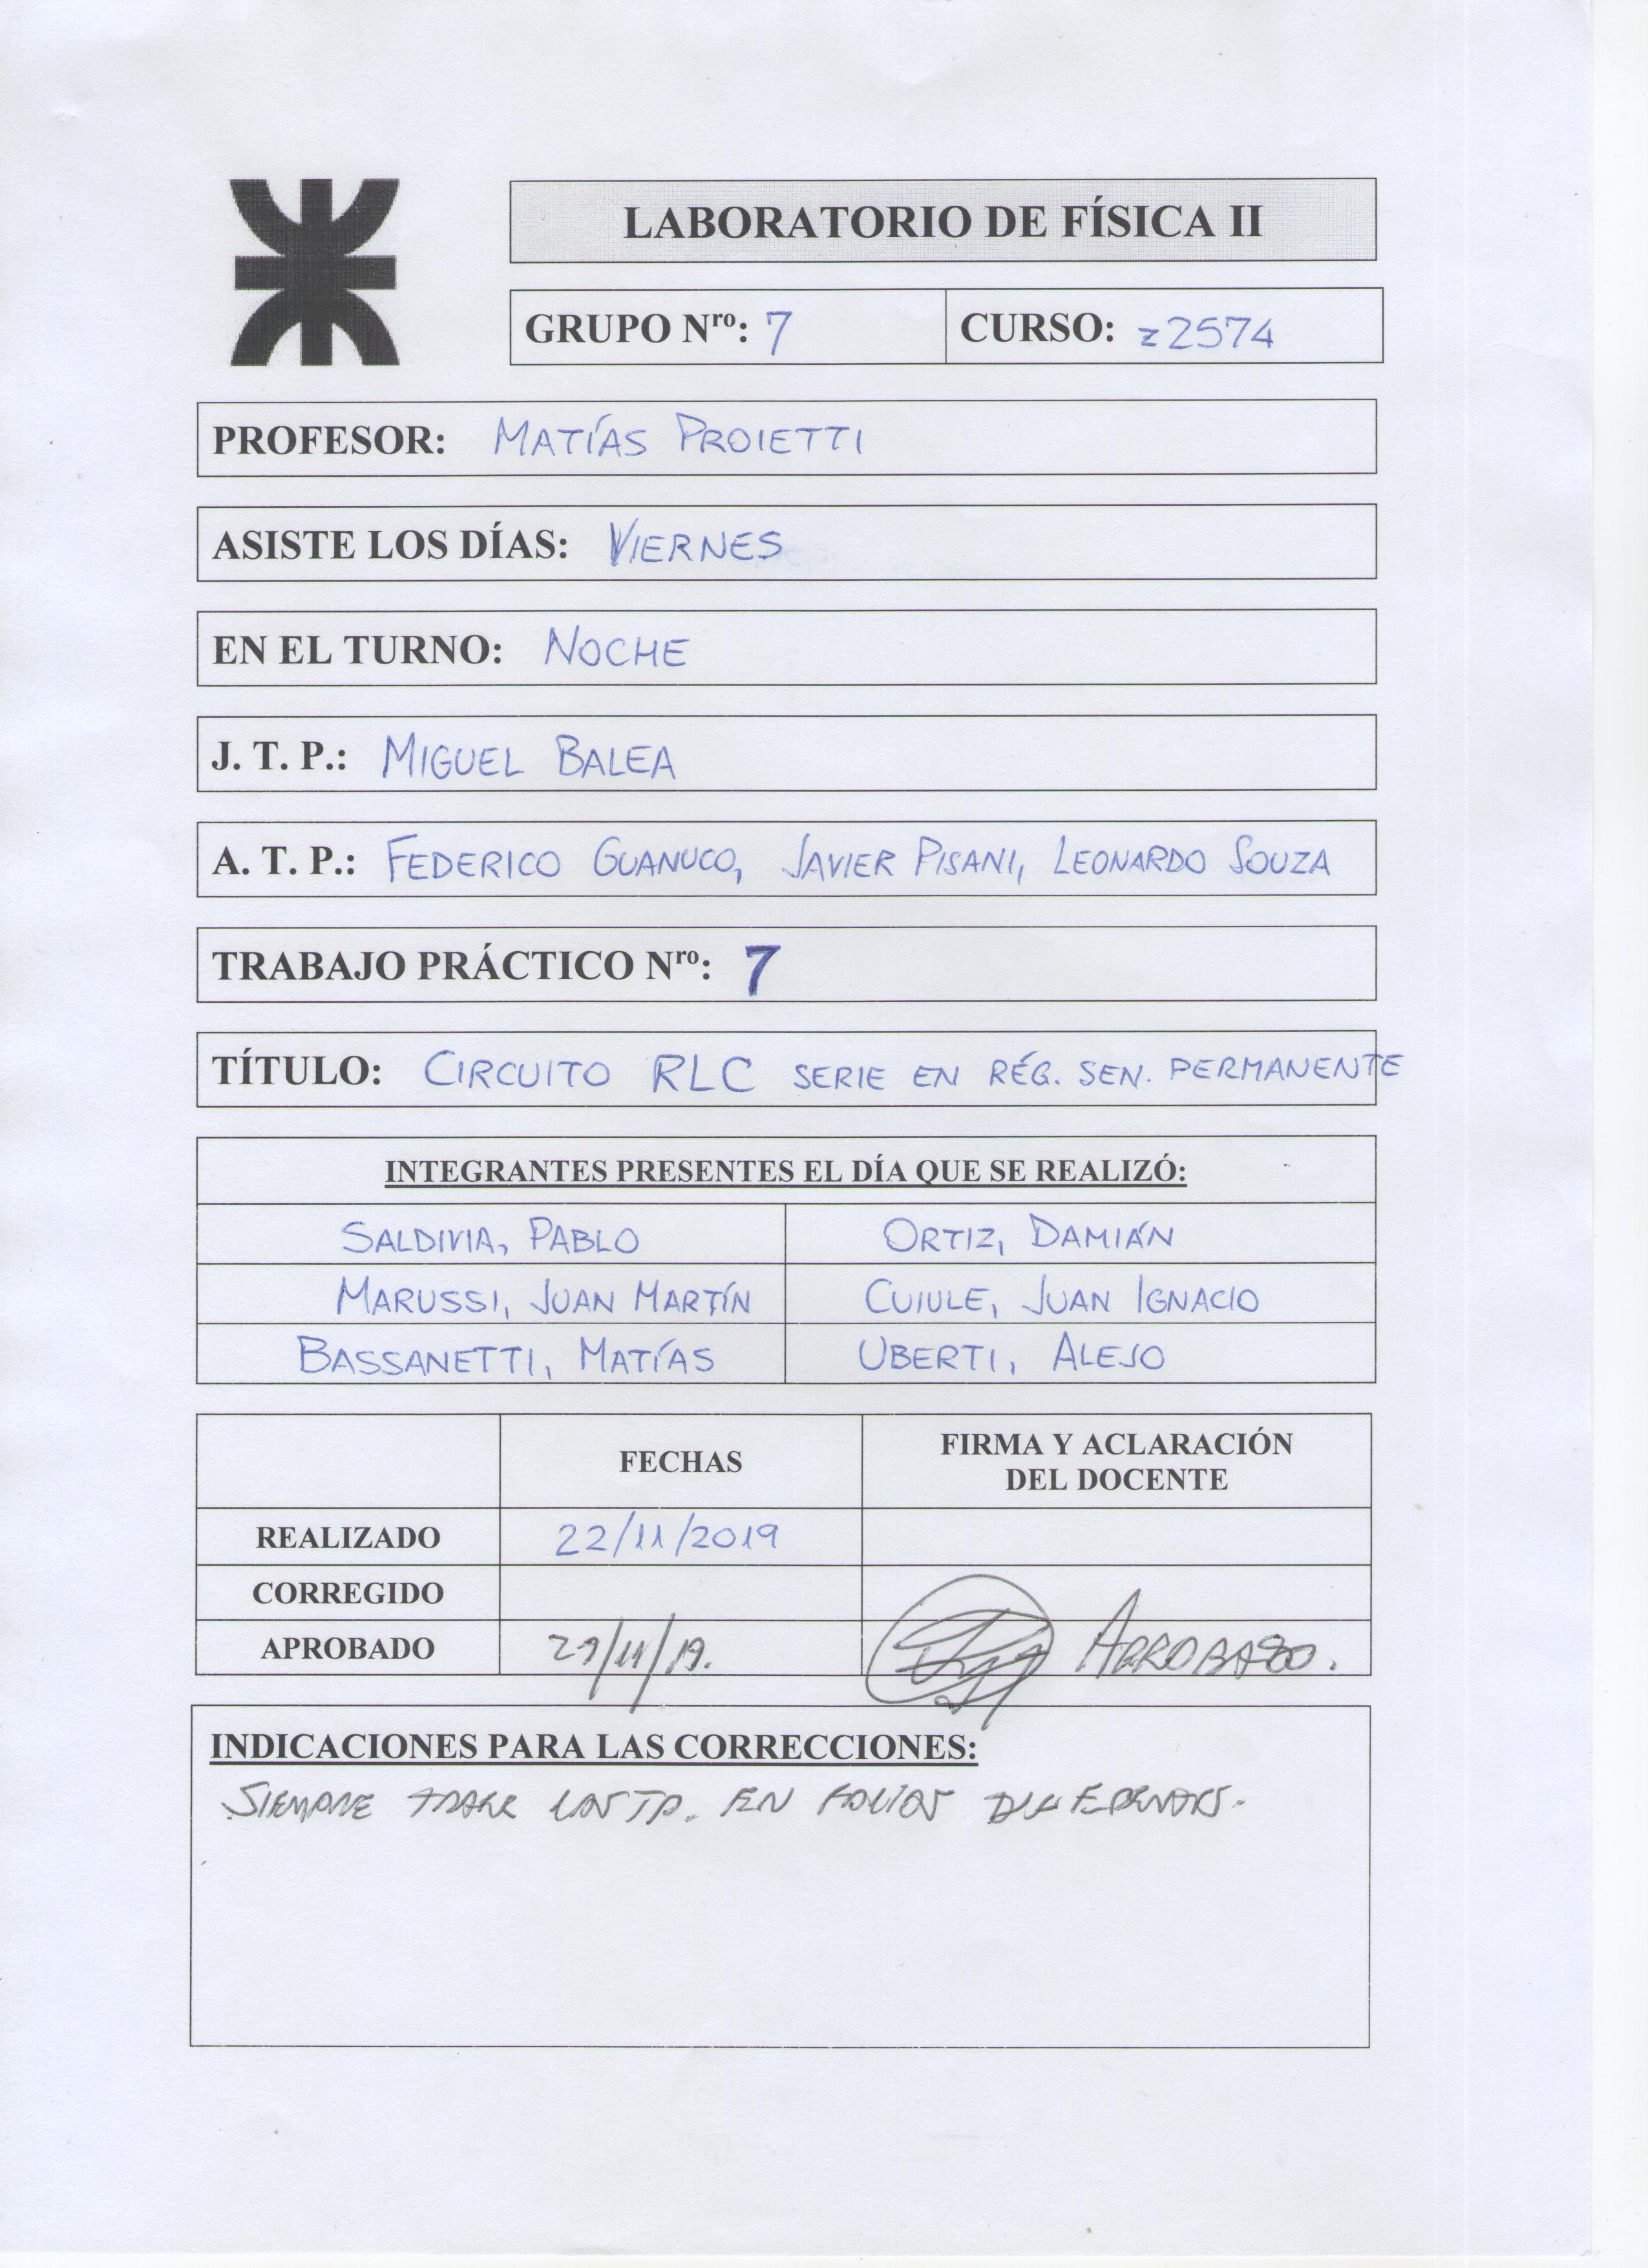 LABORATORIO DE FÍSICA II
GRUPO Nro: 7 CURSO: z2574
PROFESOR: MATÍAS PROIETTI
ASISTE LOS DÍAS: VIERNES
EN EL TURNO: NOCHE
J. T. P.: MIGUEL BALEA
A. T. P.: FEDERICO GUANUCO, JAVIER PISANI, LEONARDO SOUZA
TRABAJO PRÁCTICO Nro: 7
TÍTULO: CIRCUITO RLC SERIE EN RÉG. SEN. PERMANENTE
INTEGRANTES PRESENTES EL DÍA QUE SE REALIZÓ:
SALDIVIA, PABLO ORTIZ, DAMIÁN
MARUSSI, JUAN MARTÍN CUIULE, JUAN IGNACIO
BASSANETTI, MATÍAS UBERTI, ALEJO
FECHAS FIRMA Y ACLARACIÓN
DEL DOCENTE
REALIZADO 22/11/2019
CORREGIDO
APROBADO 29/11/19.
INDICACIONES PARA LAS CORRECCIONES:
SIEMPRE TRAER LOS TP. EN FOLIOS